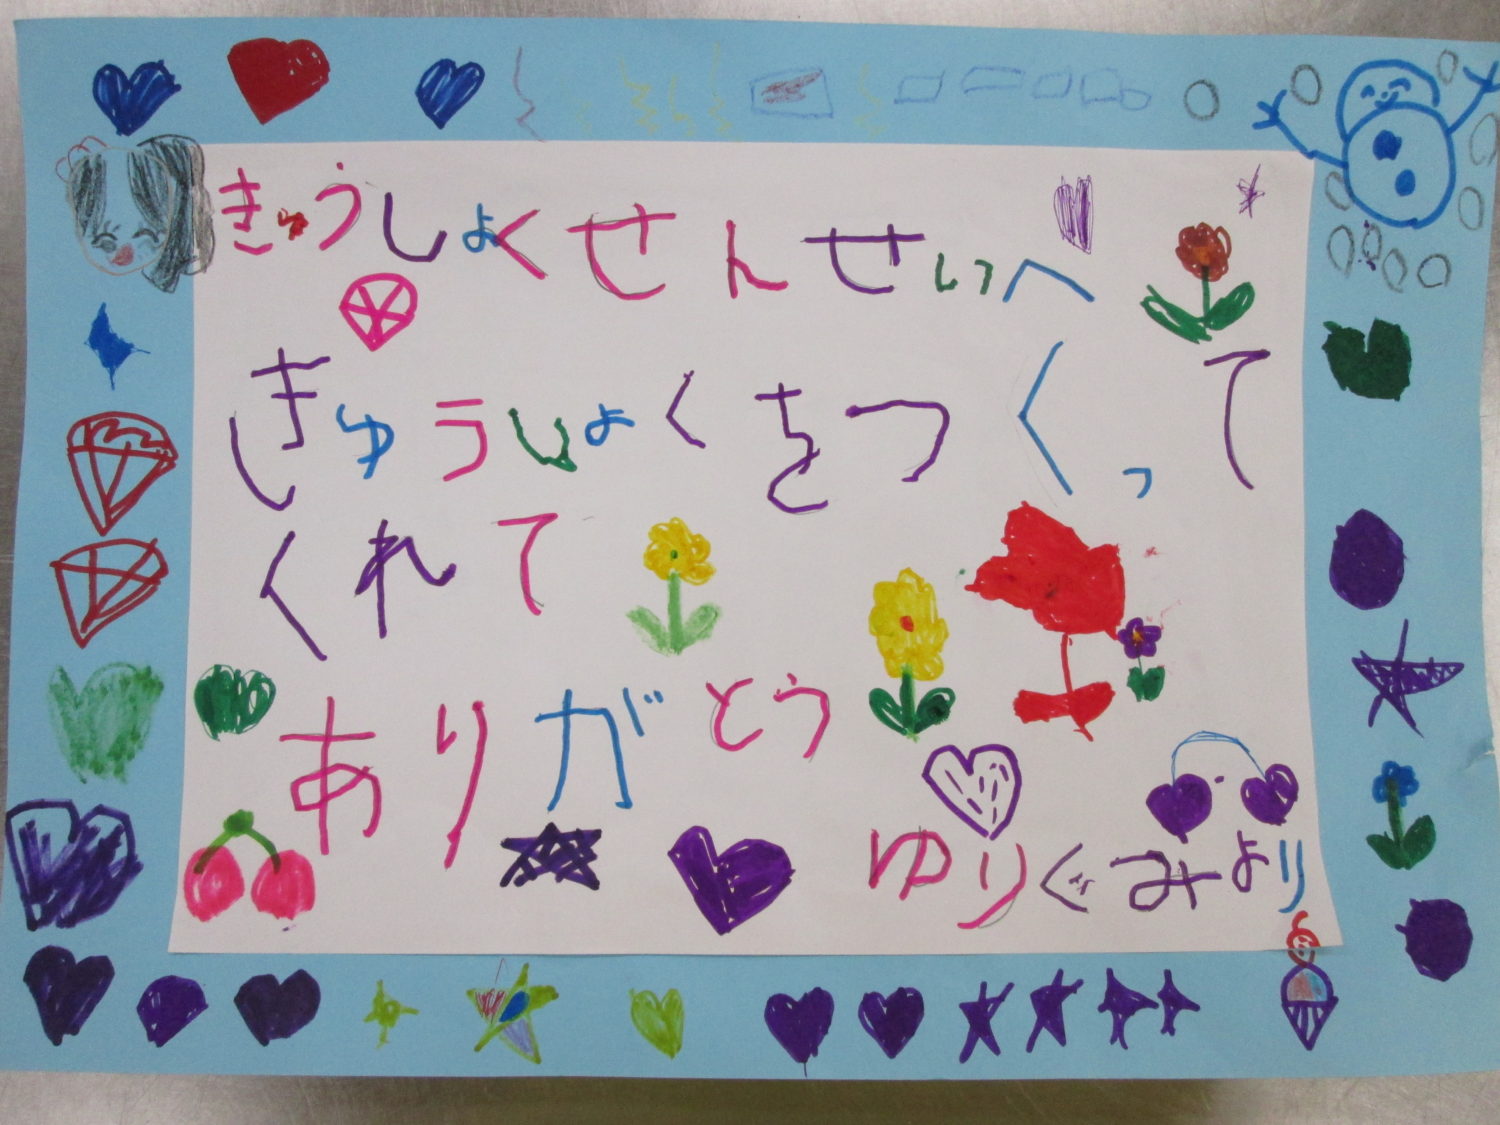 きゅうしょくせんせいへ
きゅうしょくをつくって
くれて
ありがとう
ゆりぐみより